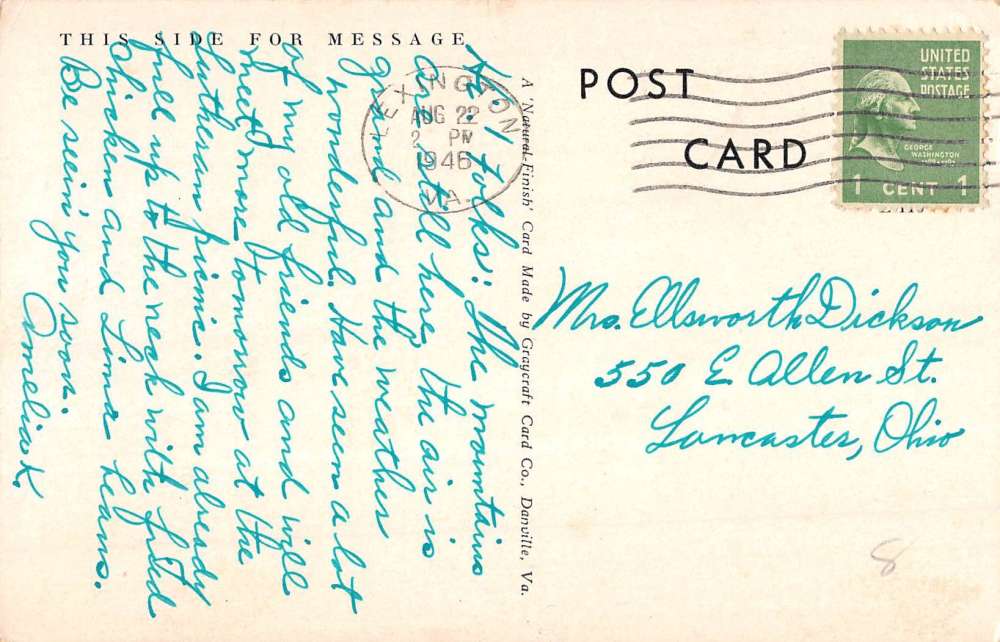 THIS SIDE FOR MESSAGE
Hey Folks: The mountains
are still here, the air is
grand and the weather
wonderful. Have seen a lot
of my old friends and will
meet more tomorrow at the
Lutheran picnic. I am already
full up to the neck with fried
chicken and Lima beans.
Be seein' you soon.
Amelia K.
LEXINGTON
AUG 22
2 PM
1946
VA.
A 'Natural-Finish' Card Made by Graycraft Card Co., Danville, Va.
POST
CARD
UNITED
STATES
POSTAGE
GEORGE
WASHINGTON
1 CENT 1
Mrs. Ellsworth Dickson
550 E Allen St.
Lancaster, Ohio
8